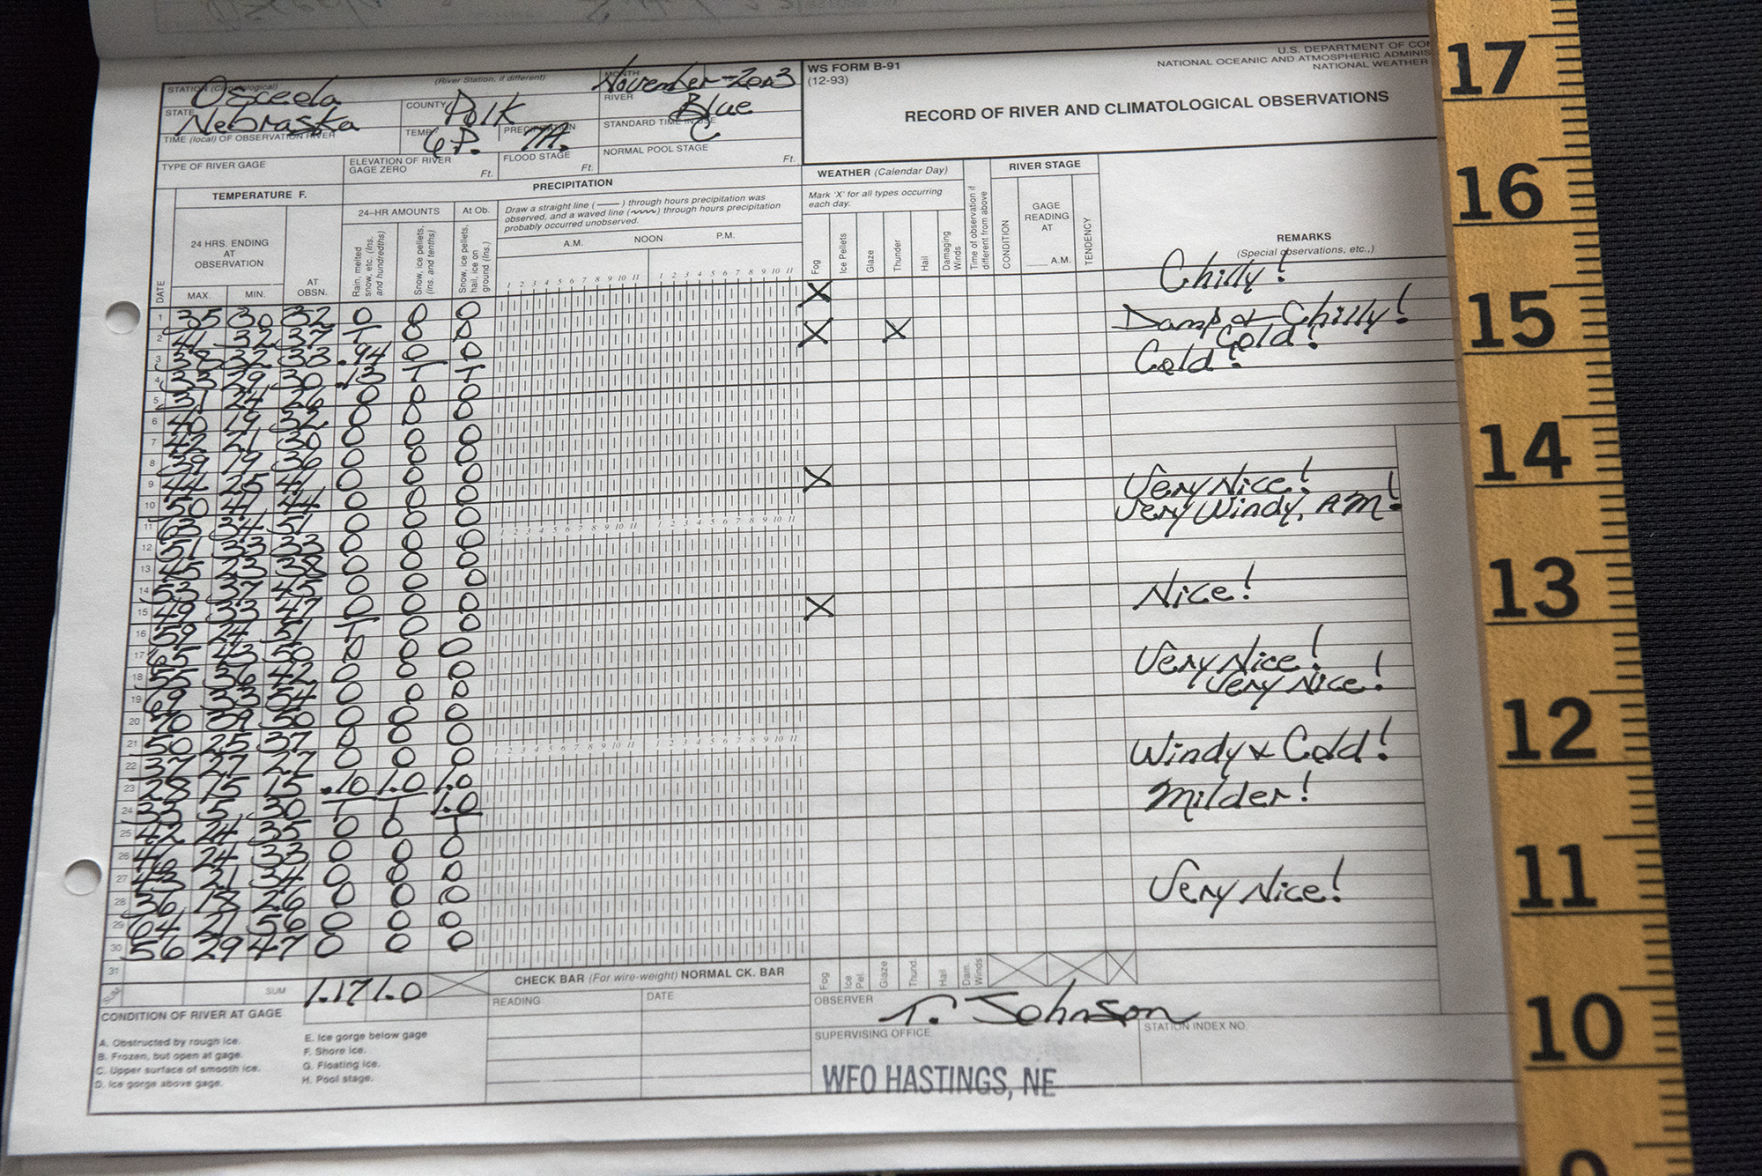 U.S. DEPARTMENT OF COM
NATIONAL OCEANIC AND ATMOSPHERIC ADMINIS
NATIONAL WEATHER
WS FORM B-91
(12-93)
RECORD OF RIVER AND CLIMATOLOGICAL OBSERVATIONS
STATION (Climatological) Osceola
(River Station, if different)
MONTH November-2003
STATE Nebraska
COUNTY Polk
RIVER Blue
TIME (local) OF OBSERVATION RIVER
TEMP. 6P.
PRECIPITATION 7A.
STANDARD TIME IN USE C
TYPE OF RIVER GAGE
ELEVATION OF RIVER GAGE ZERO Ft.
FLOOD STAGE Ft.
NORMAL POOL STAGE Ft.
TEMPERATURE F.
PRECIPITATION
WEATHER (Calendar Day)
RIVER STAGE
24 HRS. ENDING AT OBSERVATION
24-HR AMOUNTS
At Ob.
Draw a straight line (——) through hours precipitation was
observed, and a waved line (~~~) through hours precipitation
probably occurred unobserved.
Mark 'X' for all types occurring
each day.
A.M. NOON P.M.
DATE
MAX. MIN. AT OBSN.
Rain, melted snow, etc. (Ins. and hundredths)
Snow, ice pellets, (ins. and tenths)
Snow, ice pellets, hail, ice on ground (Ins.)
Fog
Ice Pellets
Glaze
Thunder
Hail
Damaging Winds
Time of observation if different from above
CONDITION
GAGE READING AT ___ A.M.
TENDENCY
REMARKS
(Special observations, etc.,)
1 2 3 4 5 6 7 8 9 10 11 1 2 3 4 5 6 7 8 9 10 11
1 35 30 32 0 0 0 X Chilly!
2 41 32 37 T 0 0 X X Damp & Chilly!
3 38 32 33 .94 0 0 Cold!
4 33 29 30 .13 T T Cold!
5 31 24 26 0 0 0
6 40 19 32 0 0 0
7 42 21 30 0 0 0
8 39 19 36 0 0 0
9 44 25 41 0 0 0 X Very Nice!
10 50 41 44 0 0 0 Very Windy, AM!
11 63 34 51 0 0 0
1 2 3 4 5 6 7 8 9 10 11 1 2 3 4 5 6 7 8 9 10 11
12 51 33 33 0 0 0
13 45 23 38 0 0 0
14 53 37 45 0 0 0 Nice!
15 49 33 47 0 0 0 X
16 59 24 51 T 0 0
17 65 43 50 0 0 0 Very Nice!
18 55 36 42 0 0 0 Very Nice!
19 69 33 54 0 0 0
20 70 39 50 0 0 0
21 50 25 37 0 0 0 Windy & Cold!
1 2 3 4 5 6 7 8 9 10 11 1 2 3 4 5 6 7 8 9 10 11
22 37 27 27 0 0 0
23 28 15 15 .10 1.0 1.0 Milder!
24 35 5 30 T T 1.0
25 42 24 35 0 0 T
26 46 24 33 0 0 0
27 43 21 34 0 0 0 Very Nice!
28 36 18 26 0 0 0
29 64 21 56 0 0 0
30 56 29 47 0 0 0
31
SUM SUM 1.17 1.0
CHECK BAR (For wire-weight) NORMAL CK. BAR
READING DATE
Fog
Ice Pel.
Glaze
Thund.
Hail
Dam. Winds
CONDITION OF RIVER AT GAGE
A. Obstructed by rough ice.
B. Frozen, but open at gage.
C. Upper surface of smooth ice.
D. Ice gorge above gage.
E. Ice gorge below gage
F. Shore ice.
G. Floating ice.
H. Pool stage.
OBSERVER T. Johnson
SUPERVISING OFFICE
STATION INDEX NO.
WFO HASTINGS, NE
17
16
15
14
13
12
11
10